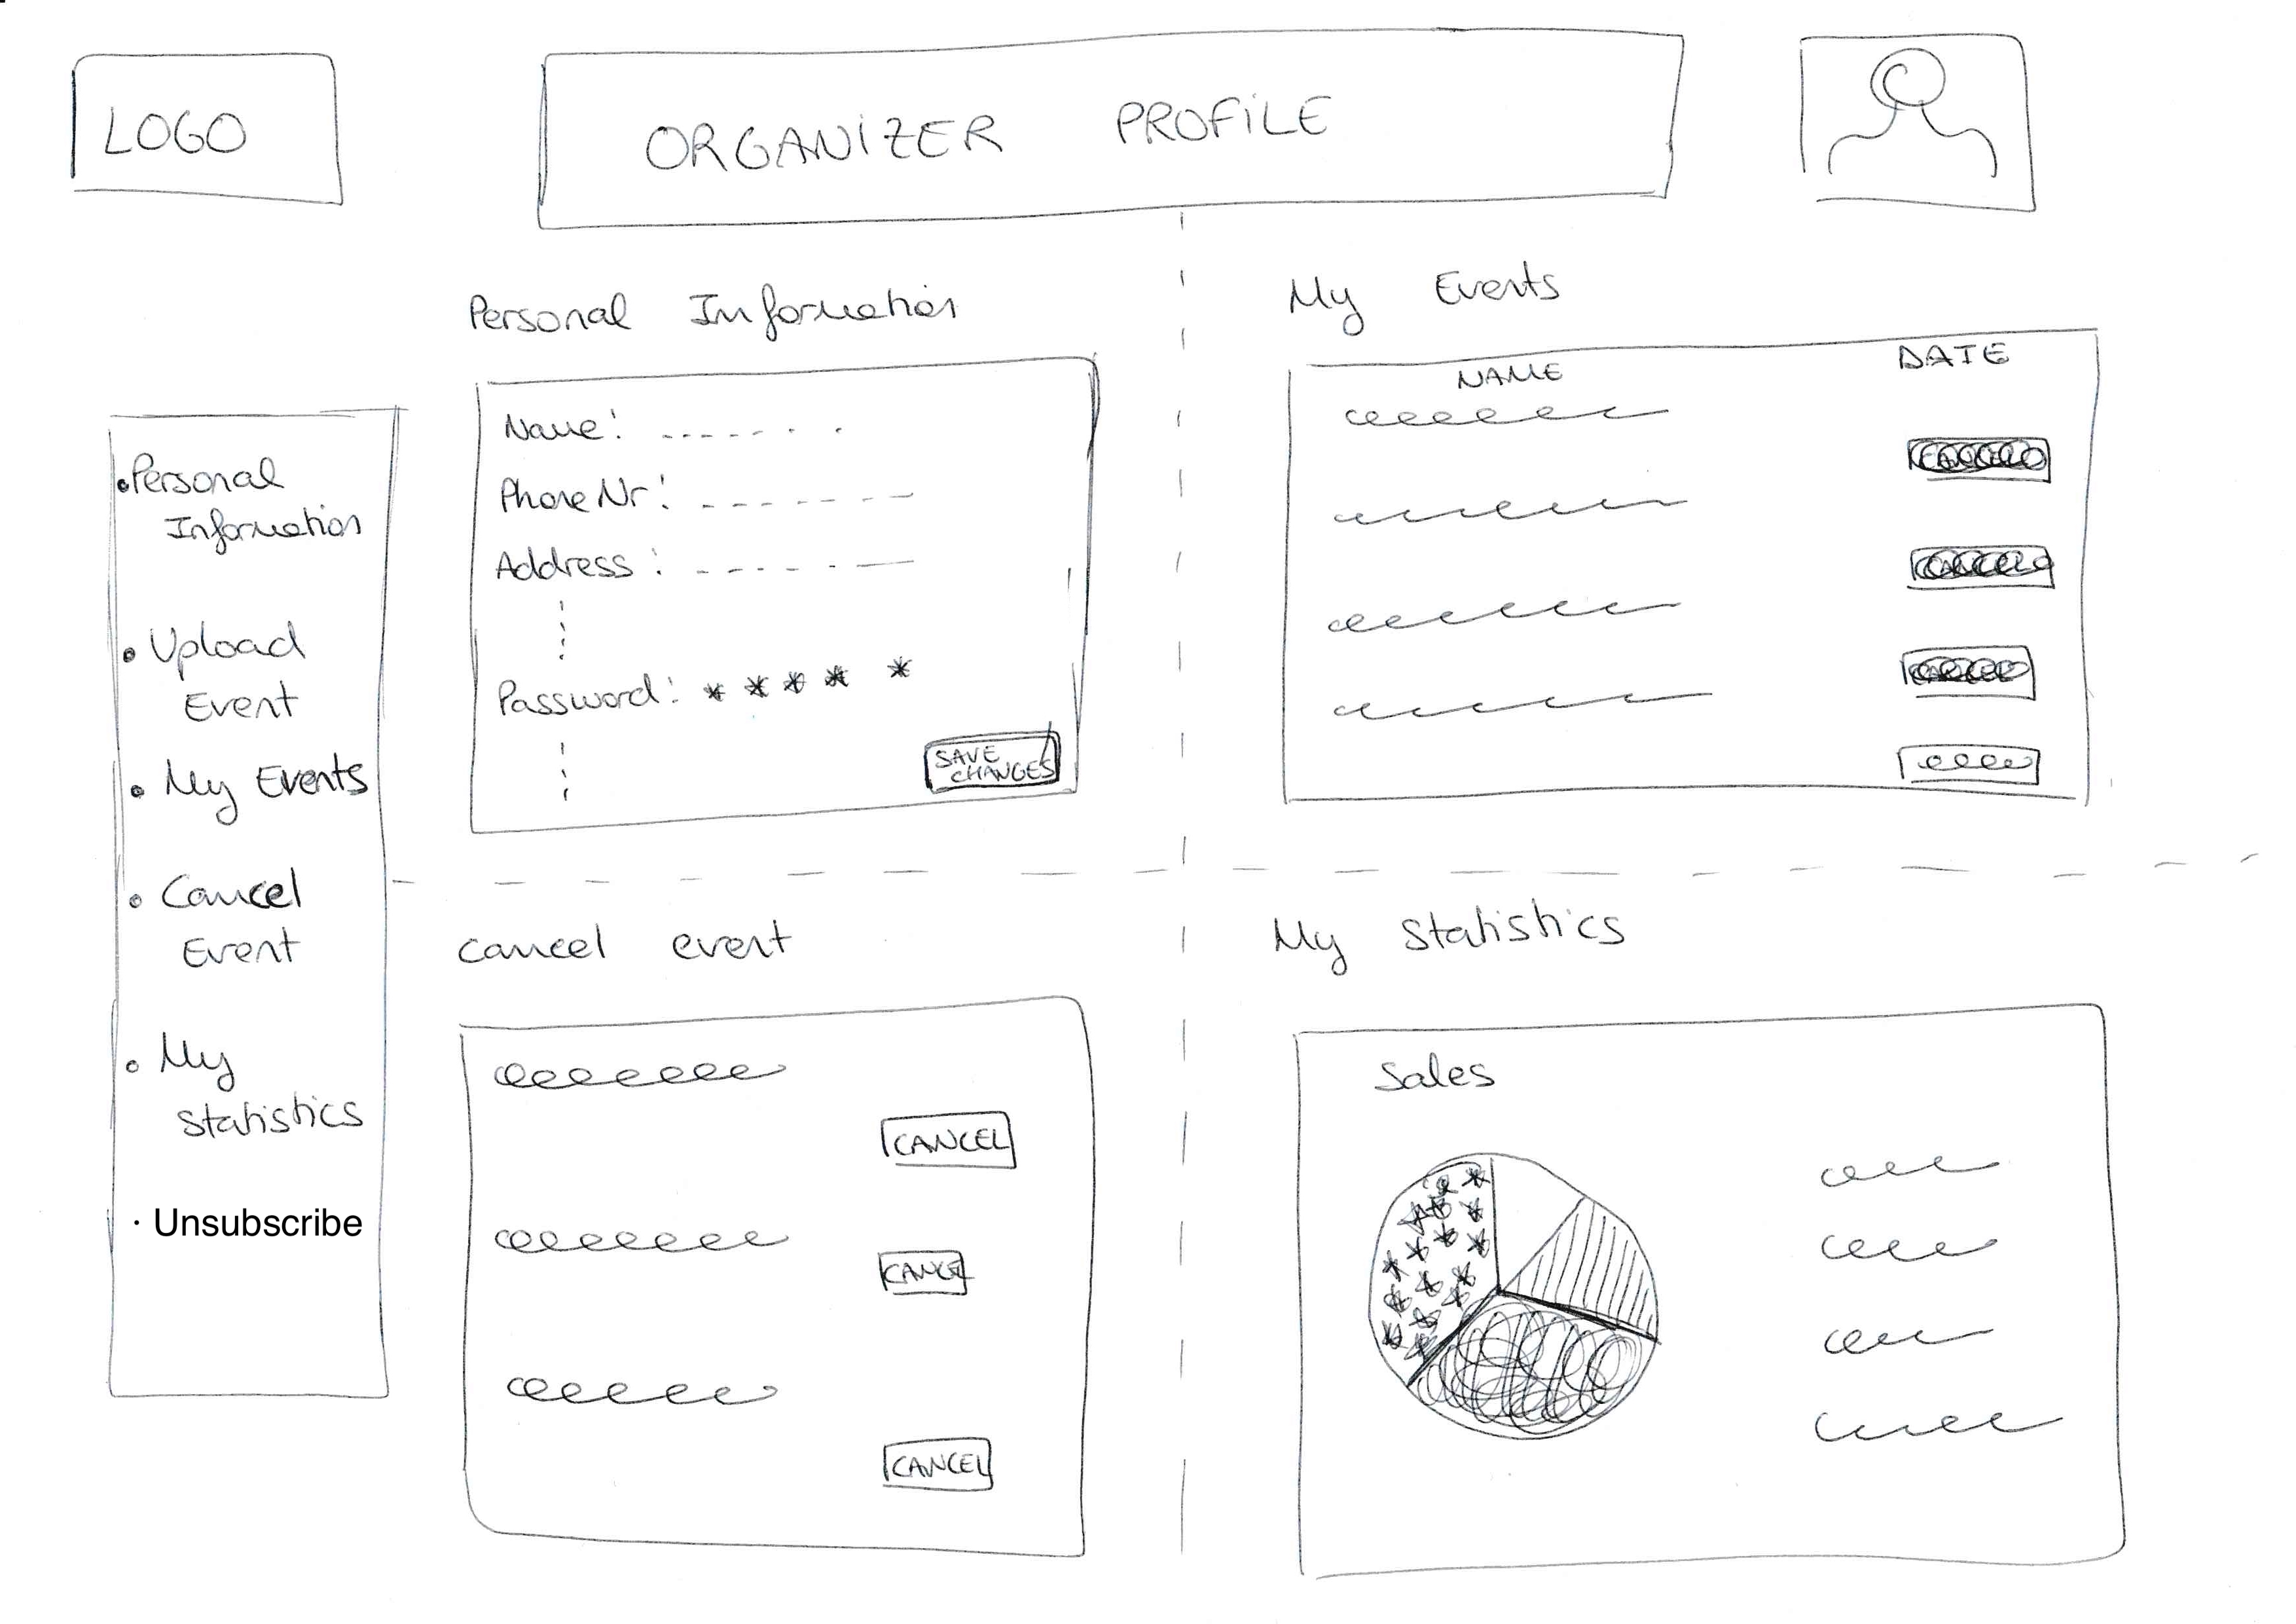 LOGO
ORGANIZER PROFILE
• Personal
Information
• Upload
Event
• My Events
• Cancel
Event
• My
Statistics
· Unsubscribe
Personal Information
Name: ------
Phone Nr: ------
Address: ------
Password: * * * * *
SAVE
CHANGES
My Events
NAME DATE
cancel event
CANCEL
CANCEL
CANCEL
My Statistics
Sales